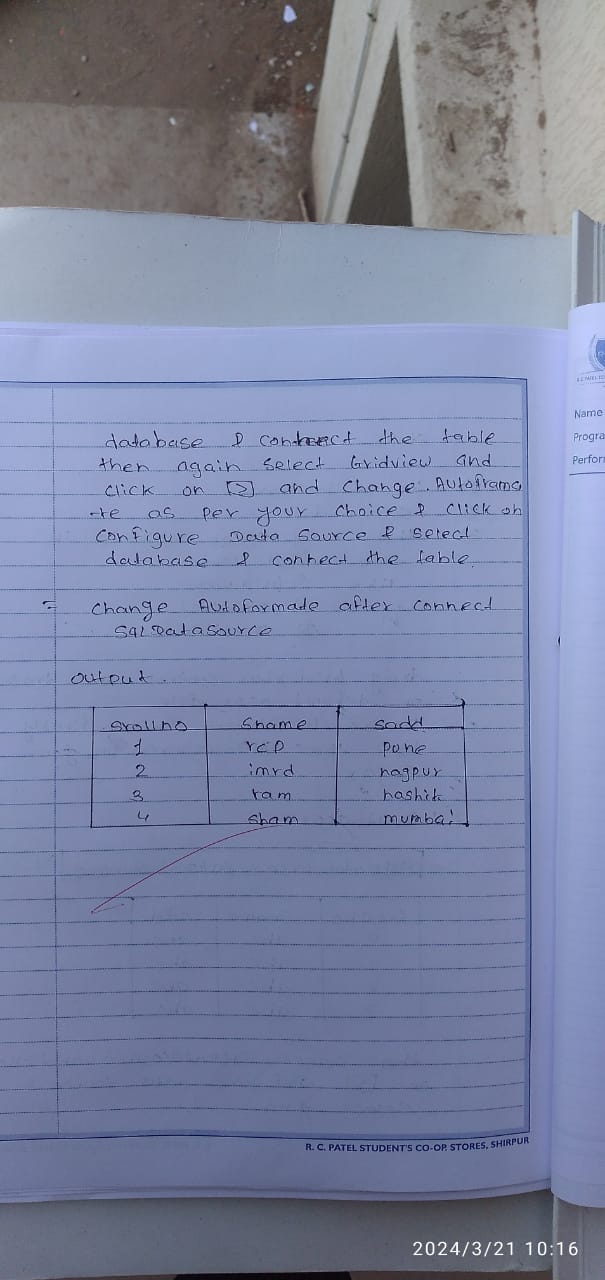 database & connect the table
then again select Gridview and
click on [>] and change Autoframa
-te as per your choice & click on
Configure Data Source & select
database & connect the table
= change Autoformade after connect
Sql DataSource
output.
srollno sname sadd
1 rcp pune
2 imrd nagpur
3 ram nashik
4 sham mumbai
R. C. PATEL STUDENT'S CO-OP. STORES, SHIRPUR
Name
Progra
Perfor
2024/3/21 10:16